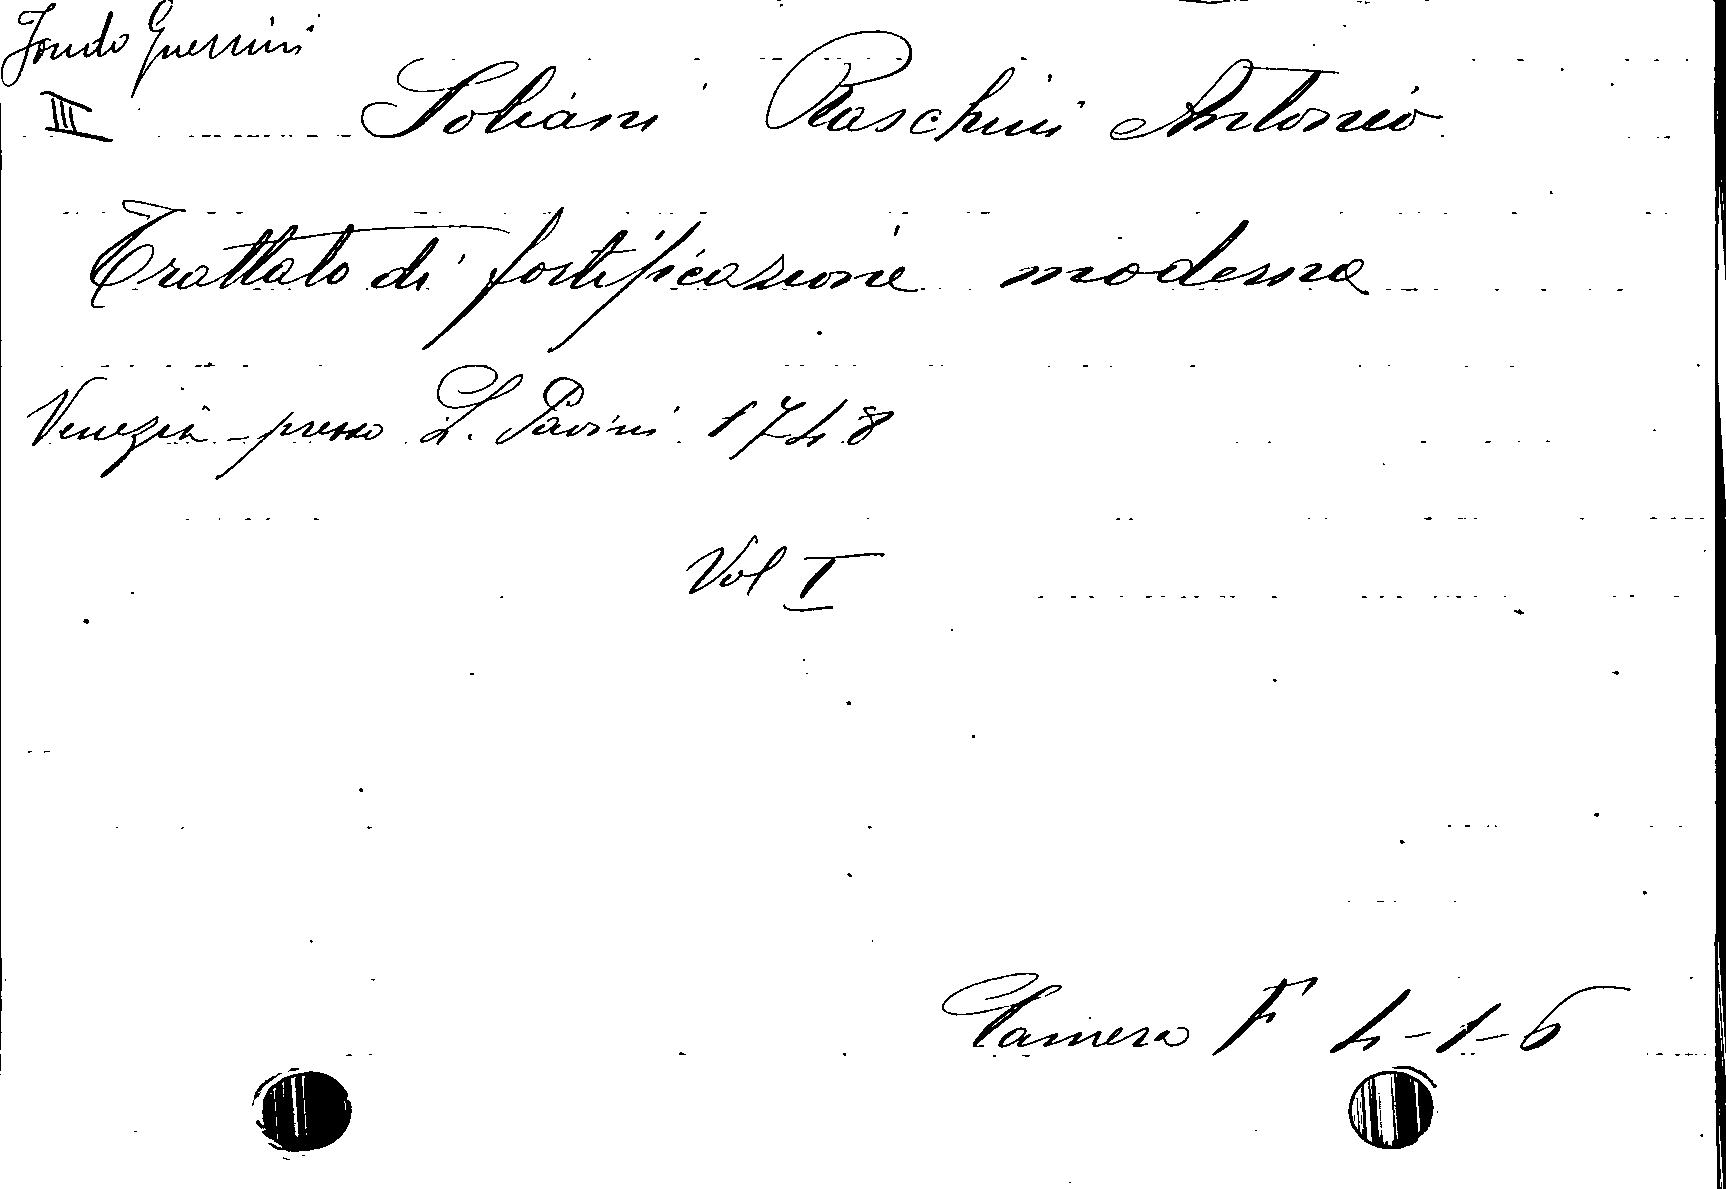 Fondo Guerrini
III Soliani Raschini Antonio
Trattato di fortificazione moderna
Venezia - presso L. Pavini 1748
Vol I
Camera F 4-1-6